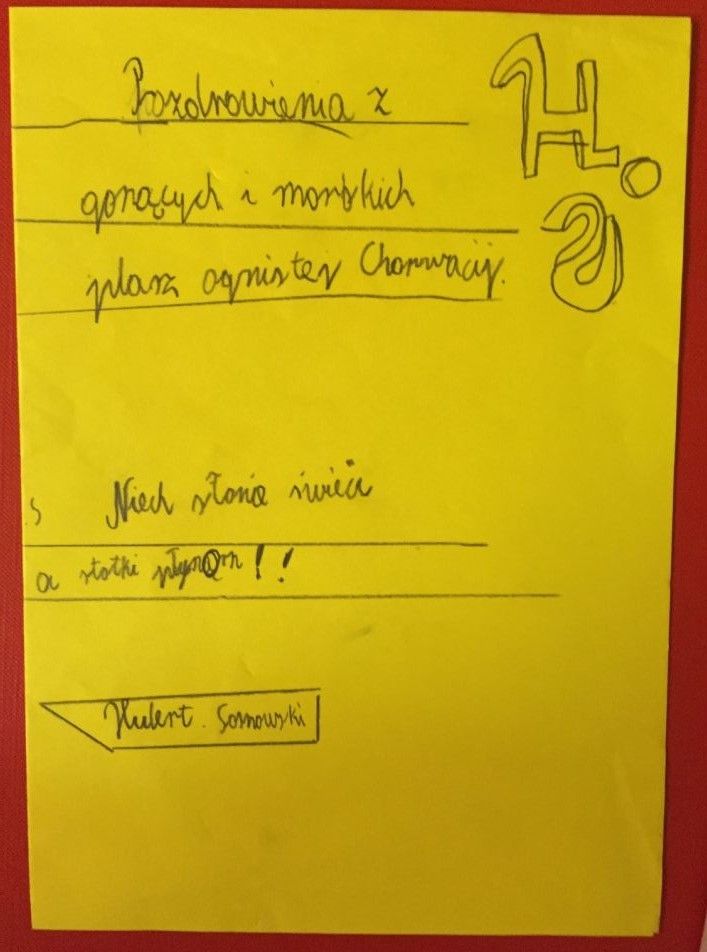 Pozdrowienia z
H.
gorących i morskich
S
plarz ognistej Chorwacij.
.S Niech słonie świeci
a statki płynom!!
Hubert. Sosnowski